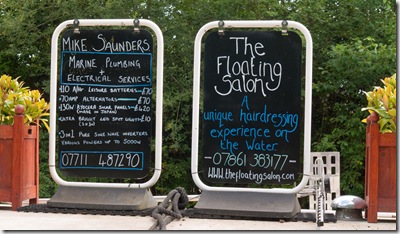 Mike Saunders
Marine Plumbing
+
Electrical Services
110 A/hr Leisure Batteries £70
70Amp Alternators £70
130w Kyocera Solar Panels £420
(made in Japan)
Extra Bright LED Spot Lights £10
3 in 1 Pure Sine Wave Inverters
Various Powers up to 5000w
07711 487290
The
Floating
Salon
A
unique hairdressing
experience on
the water.
- 07861 383177 -
www.thefloatingsalon.com